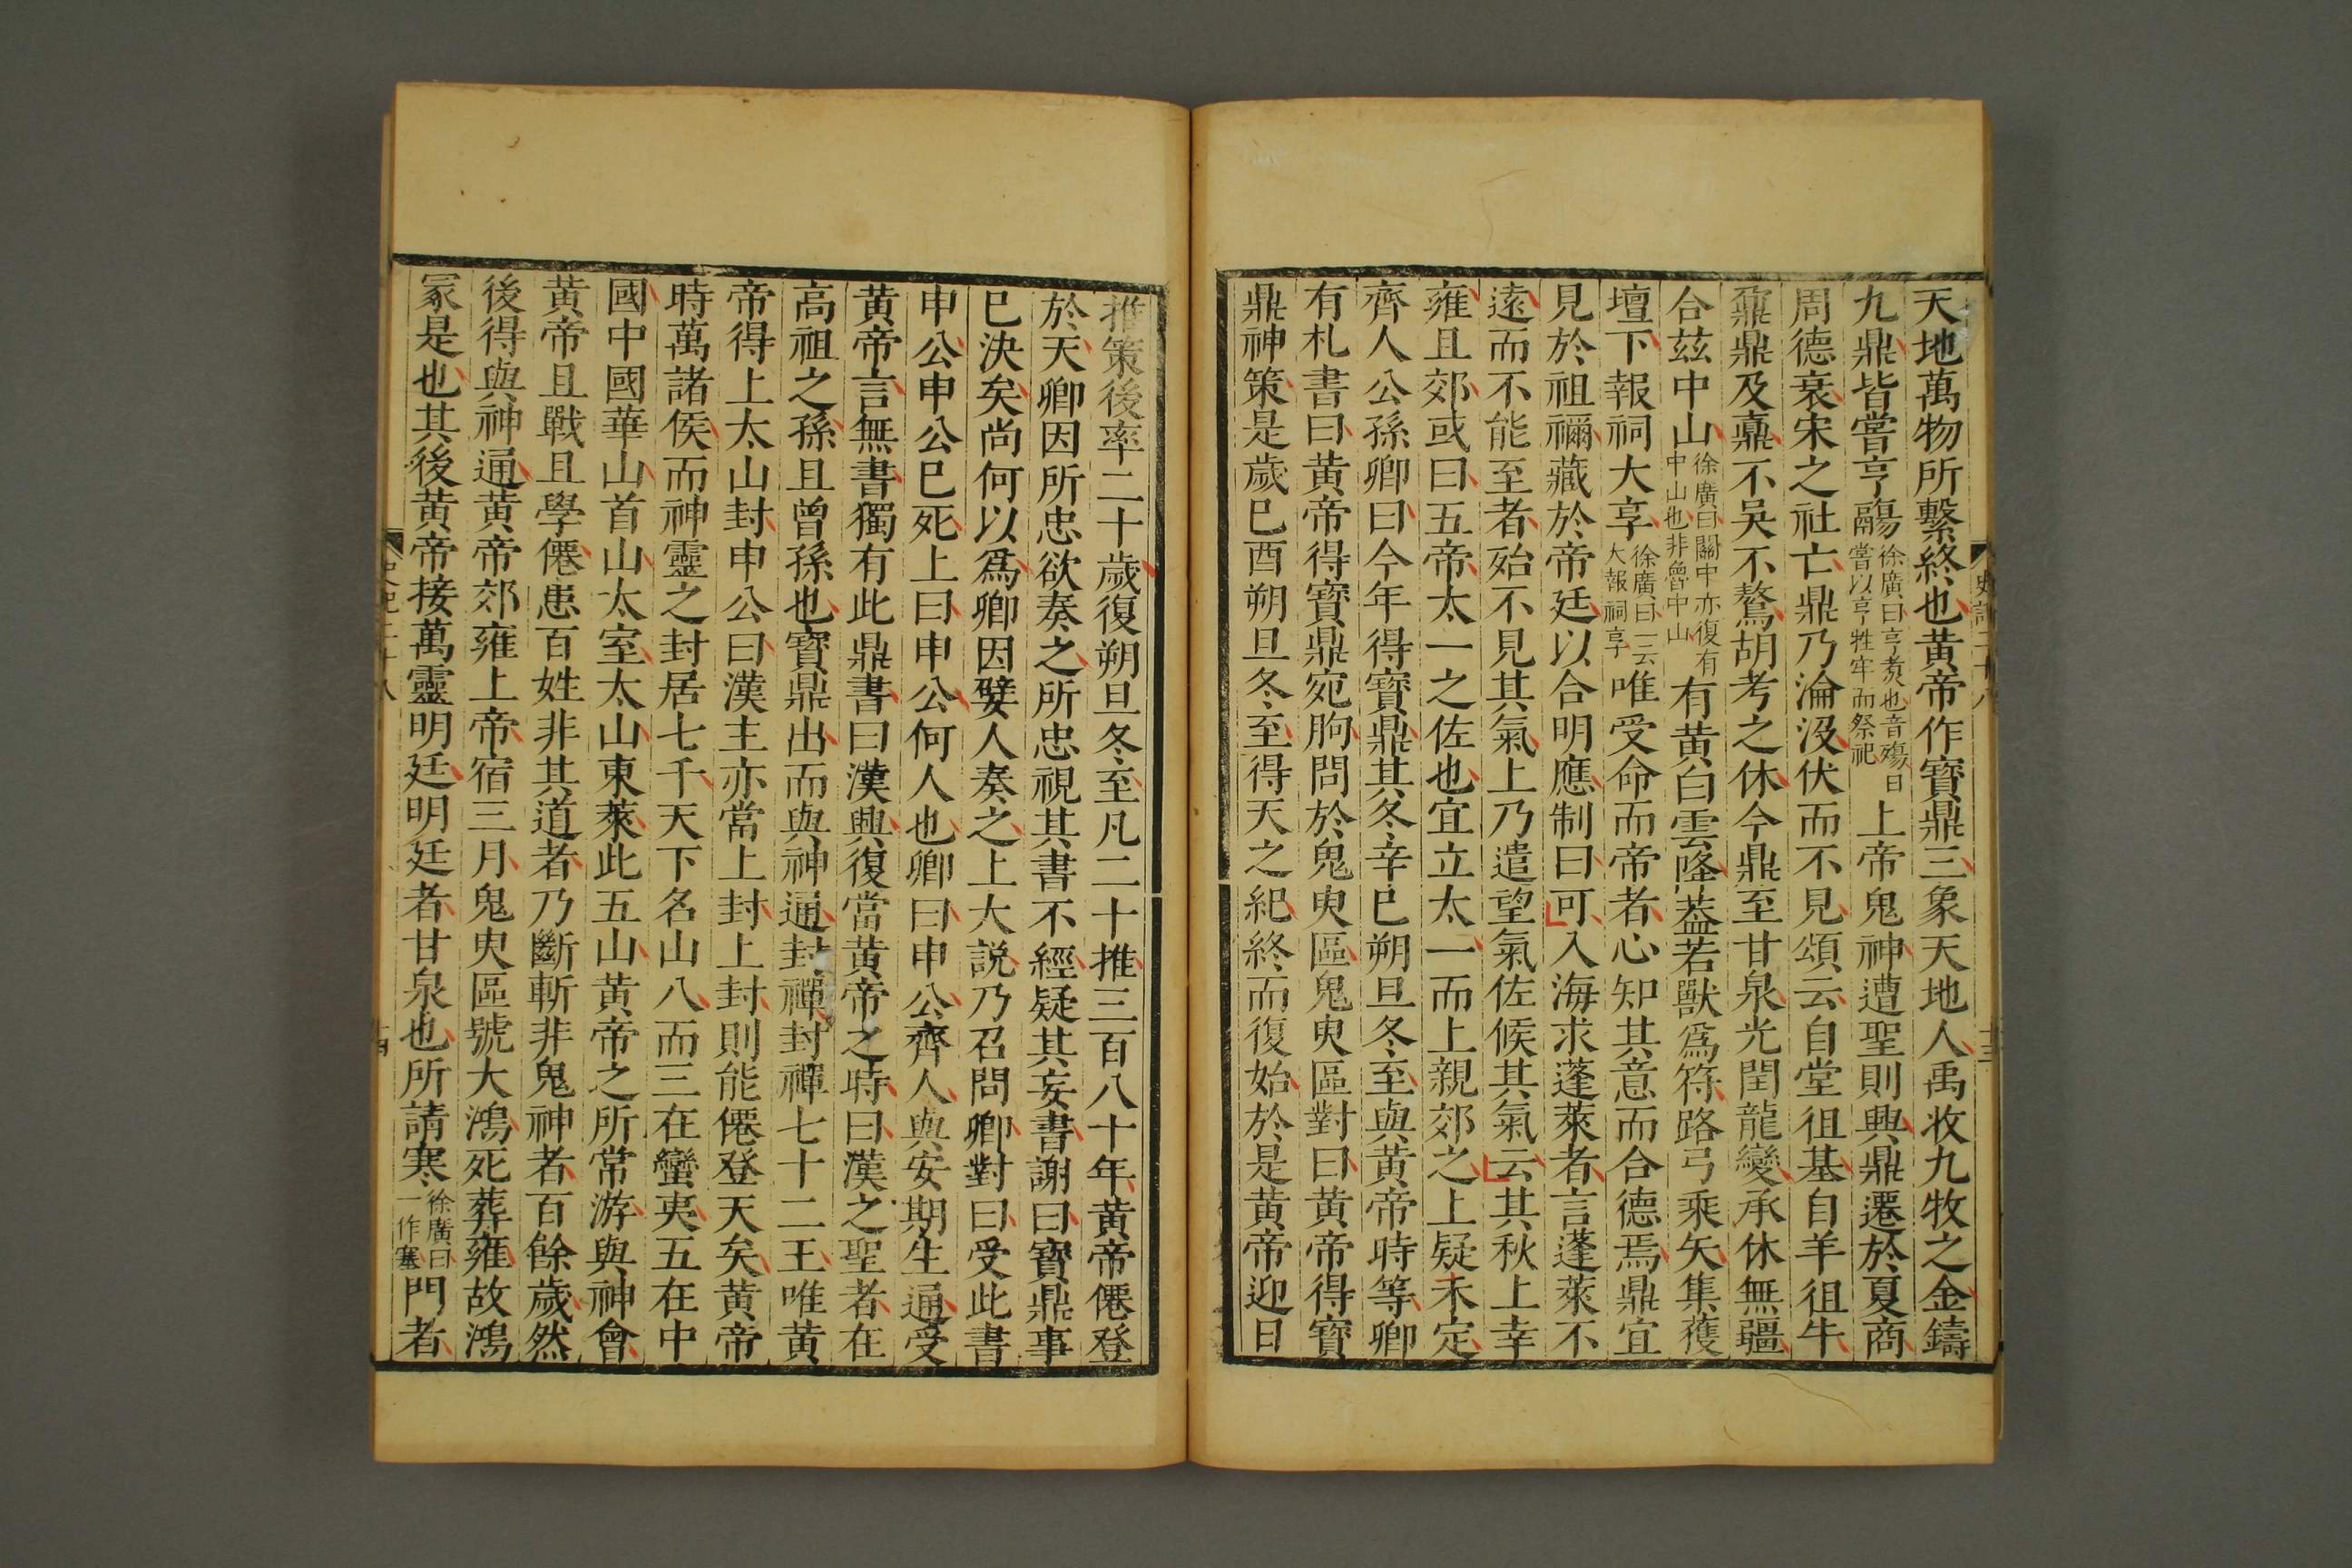 天地萬物所繫終也黃帝作寶鼎三象天地人禹收九牧之金鑄
九鼎皆嘗亨鬺
徐廣曰亨煑也音殤曰
嘗以亨牲牢而祭祀
上帝鬼神遭聖則興鼎遷於夏商
周德衰宋之社亡鼎乃淪沒伏而不見頌云自堂徂基自羊徂牛
鼐鼎及鼒不吳不驁胡考之休今鼎至甘泉光閏龍變承休無疆
合茲中山
徐廣曰關中亦復有
中山也非魯中山
有黃白雲降蓋若獸爲符路弓乘矢集獲
壇下報祠大享
徐廣曰一云
大報祠享
唯受命而帝者心知其意而合德焉鼎宜
見於祖禰藏於帝廷以合明應制曰可入海求蓬萊者言蓬萊不
遠而不能至者殆不見其氣上乃遣望氣佐候其氣云其秋上幸
雍且郊或曰五帝太一之佐也宜立太一而上親郊之上疑未定
齊人公孫卿曰今年得寶鼎其冬辛巳朔旦冬至與黃帝時等卿
有札書曰黃帝得寶鼎宛朐問於鬼臾區鬼臾區對曰黃帝得寶
鼎神策是歲巳酉朔旦冬至得天之紀終而復始於是黃帝迎日
推策後率二十歲復朔旦冬至凡二十推三百八十年黃帝僊登
於天卿因所忠欲奏之所忠視其書不經疑其妄書謝曰寶鼎事
已決矣尚何以爲卿因嬖人奏之上大說乃召問卿對曰受此書
申公申公已死上曰申公何人也卿曰申公齊人與安期生通受
黃帝言無書獨有此鼎書曰漢興復當黃帝之時曰漢之聖者在
高祖之孫且曾孫也寶鼎出而與神通封禪封禪七十二王唯黃
帝得上太山封申公曰漢主亦當上封上封則能僊登天矣黃帝
時萬諸侯而神靈之封居七千天下名山八而三在蠻夷五在中
國中國華山首山太室太山東萊此五山黃帝之所常游與神會
黃帝且戰且學僊患百姓非其道者乃斷斬非鬼神者百餘歲然
後得與神通黃帝郊雍上帝宿三月鬼臾區號大鴻死葬雍故鴻
冢是也其後黃帝接萬靈明廷明廷者甘泉也所請寒
徐廣曰
一作塞
門者
史記二十八
十三
史記二十八
十四